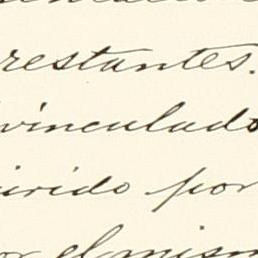 restantes.
vinculado
urido por
el mism